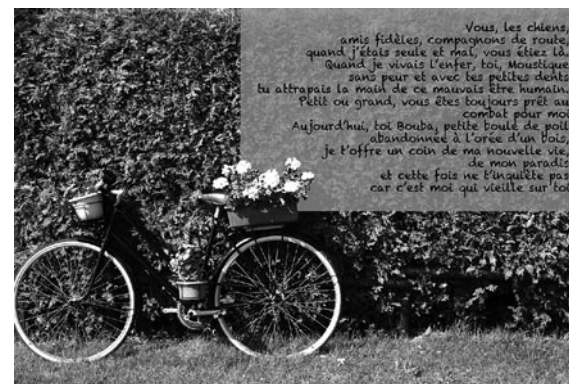 Vous, les chiens,
amis fidèles, compagnons de route,
quand j'étais seule et mal, vous étiez là.
Quand je vivais l'enfer, toi, Moustique
sans peur et avec tes petites dents
tu attrapais la main de ce mauvais être humain.
Petit ou grand, vous êtes toujours prêt au
combat pour moi
Aujourd'hui, toi Bouba, petite boule de poil
abandonnée à l'orée d'un bois,
je t'offre un coin de ma nouvelle vie,
de mon paradis
et cette fois ne t'inquiète pas
car c'est moi qui vieille sur toi